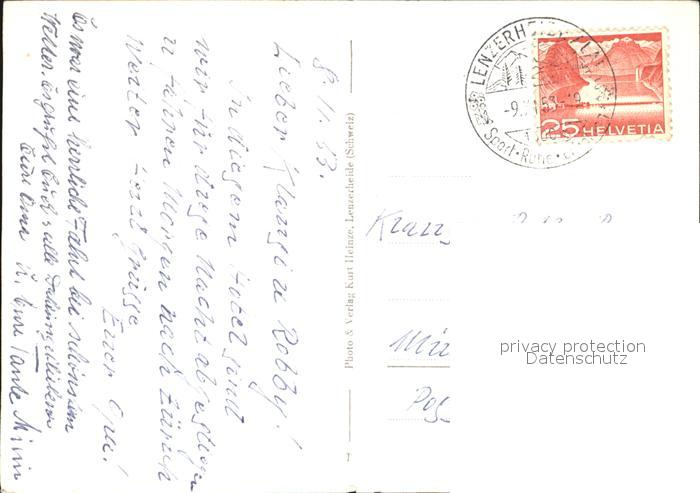 8.11.53.
Lieber Klausi u Robby!
In diesem Hotel sind
wir für diese Nacht abgestiegen
u fahren Morgen nach Zürich
weiter
Grüsse
Euer Opa!
Es war eine herrliche Fahrt bei schönstem
Wetter. Es grüßt Euch u alle
Eure Oma u. Eure Tante Mimi
Photo & Verlag Kurt Heinze, Lenzerheide (Schweiz)
7
LENZERHEIDE
-9.XI.53-
Sport · Ruhe ·
25 HELVETIA
privacy protection
Datenschutz